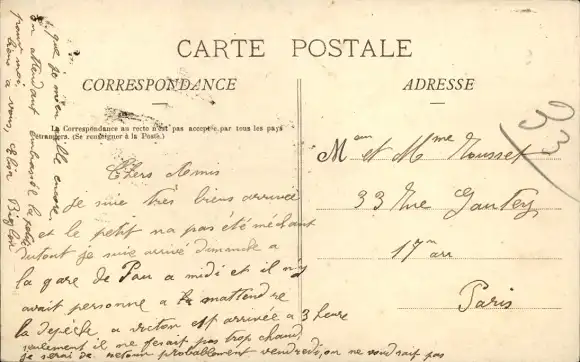 CARTE POSTALE
CORRESPONDANCE
ADRESSE
La Correspondance au recto n'est pas acceptée par tous les pays
étrangers. (Se renseigner à la Poste.)
Chers Amis
je suie très biens arrivée
et le petit na pas été méchant
dutout je suie arrivé dimanche a
la gare de Pau a midi et il n'y
avait personne a mattendre
la depeche a victon est arrivée a 3 heure
seulement il ne fesait pas trop chaud
je serai de retour probablement vendredi, on ne voudrait pas
que je m'en aille encore
en attendant embrassé la
pour moi
biens a vous,
Mr et Mme Rousset
33 Rue Gauthey
17m arr
Paris